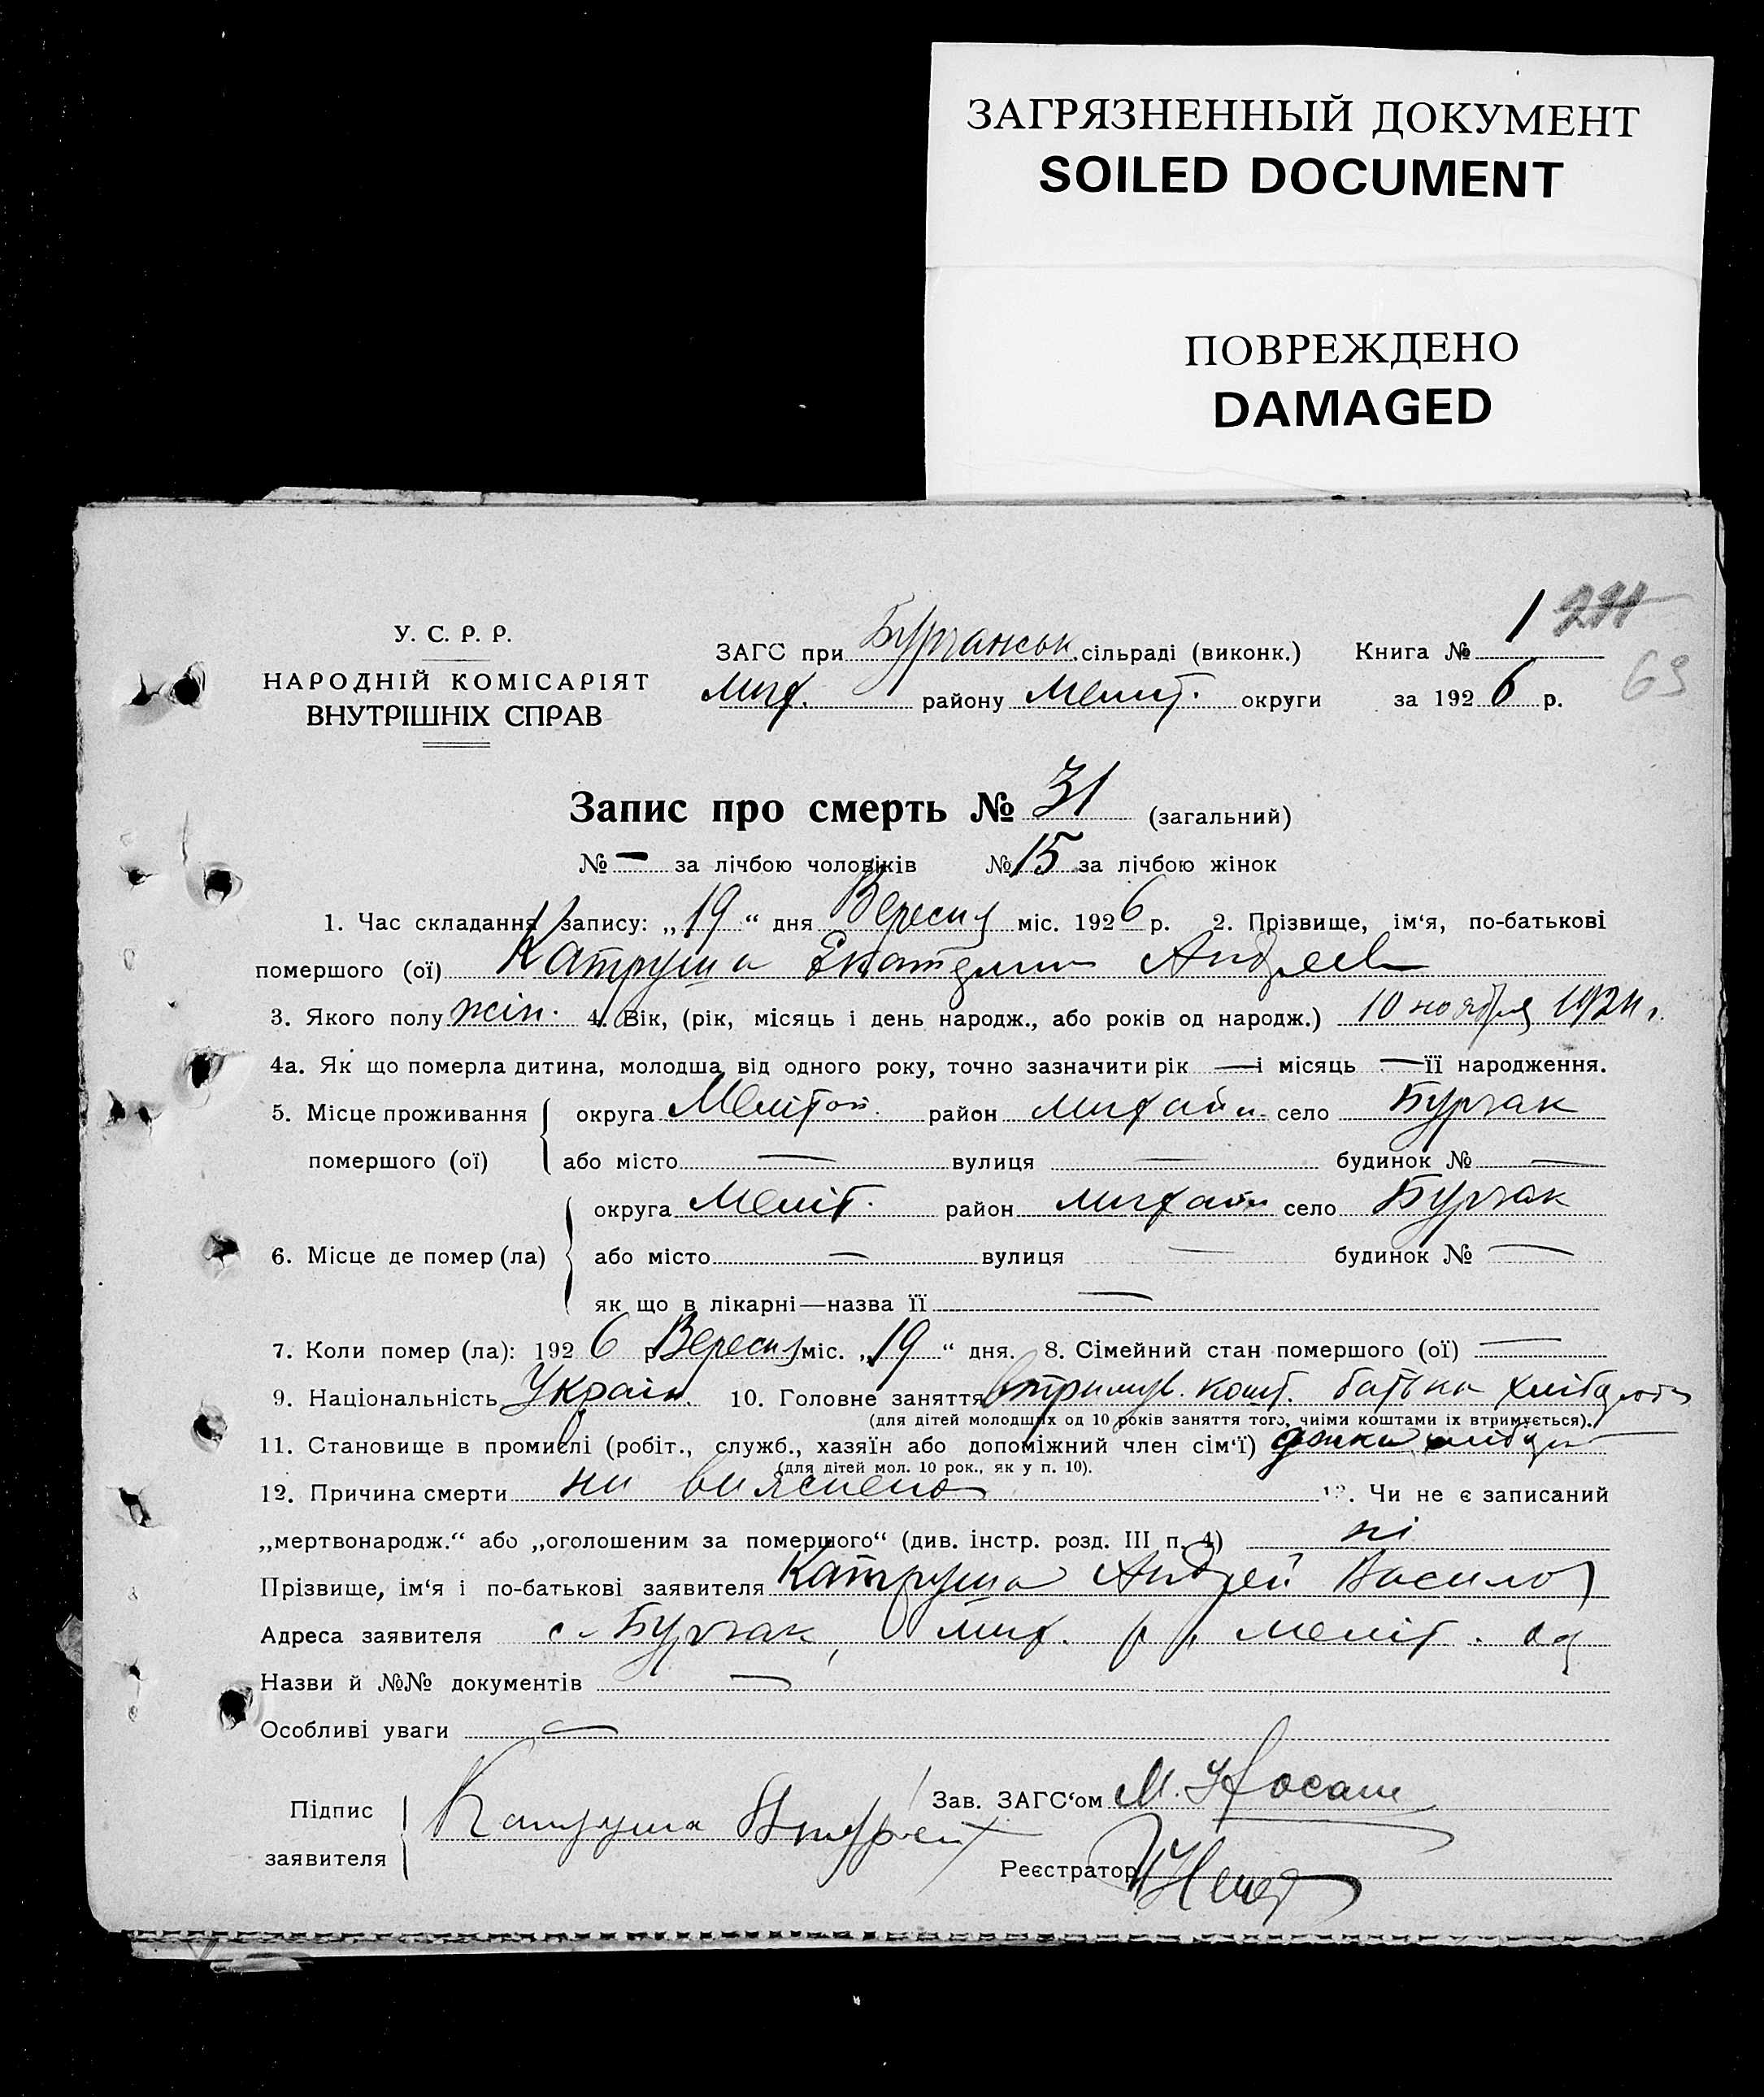 ЗАГРЯЗНЕННЫЙ ДОКУМЕНТ
SOILED DOCUMENT
ПОВРЕЖДЕНО
DAMAGED
У. С. Р. Р.
НАРОДНІЙ КОМІСАРІЯТ
ВНУТРІШНІХ СПРАВ
ЗАГС при Бурчанськ. сільраді (виконк.) Книга № 1
Мих. району Меліт. округи за 1926 р. 69
Запис про смерть № 31 (загальний)
№ — за лічбою чоловіків № 15 за лічбою жінок
1. Час складання запису: „19“ дня Вересня міс. 1926 р. 2. Прізвище, ім‘я, по-батькові
помершого (ої) Катруша Екатерина Андреев
3. Якого полу жін. 4. Вік, (рік, місяць і день народж., або років од народж.) 10 ноября 1924 г.
4а. Як що померла дитина, молодша від одного року, точно зазначити рік — і місяць — її народження.
5. Місце проживання округа Мелітоп. район Михайл. село Бурчак
помершого (ої) або місто — вулиця — будинок № —
округа Меліт. район Михайл село Бурчак
6. Місце де помер (ла) або місто — вулиця — будинок № —
як що в лікарні—назва її —
7. Коли помер (ла): 1926 р Вересня міс. „19“ дня. 8. Сімейний стан помершого (ої) —
9. Національність Україн. 10. Головне заняття втримув. кошт. батька хлібороба
(для дітей молодших од 10 років заняття того, чиїми коштами їх втримується).
11. Становище в промислі (робіт., служб., хазяїн або допоміжний член сім‘ї) дочка
(для дітей мол. 10 рок., як у п. 10).
12. Причина смерти ни вияснено 13. Чи не є записаний
„мертвонародж.“ або „оголошеним за помершого“ (див. інстр. розд. III п. 4) ні
Прізвище, ім‘я і по-батькові заявителя Катруша Андрей Васильов
Адреса заявителя с. Бурчак, Мих. р. Меліт.
Назви й №№ документів —
Особливі уваги —
Зав. ЗАГС‘ом М. Носаш
Підпис Катруша Андрей
заявителя
Реєстратор